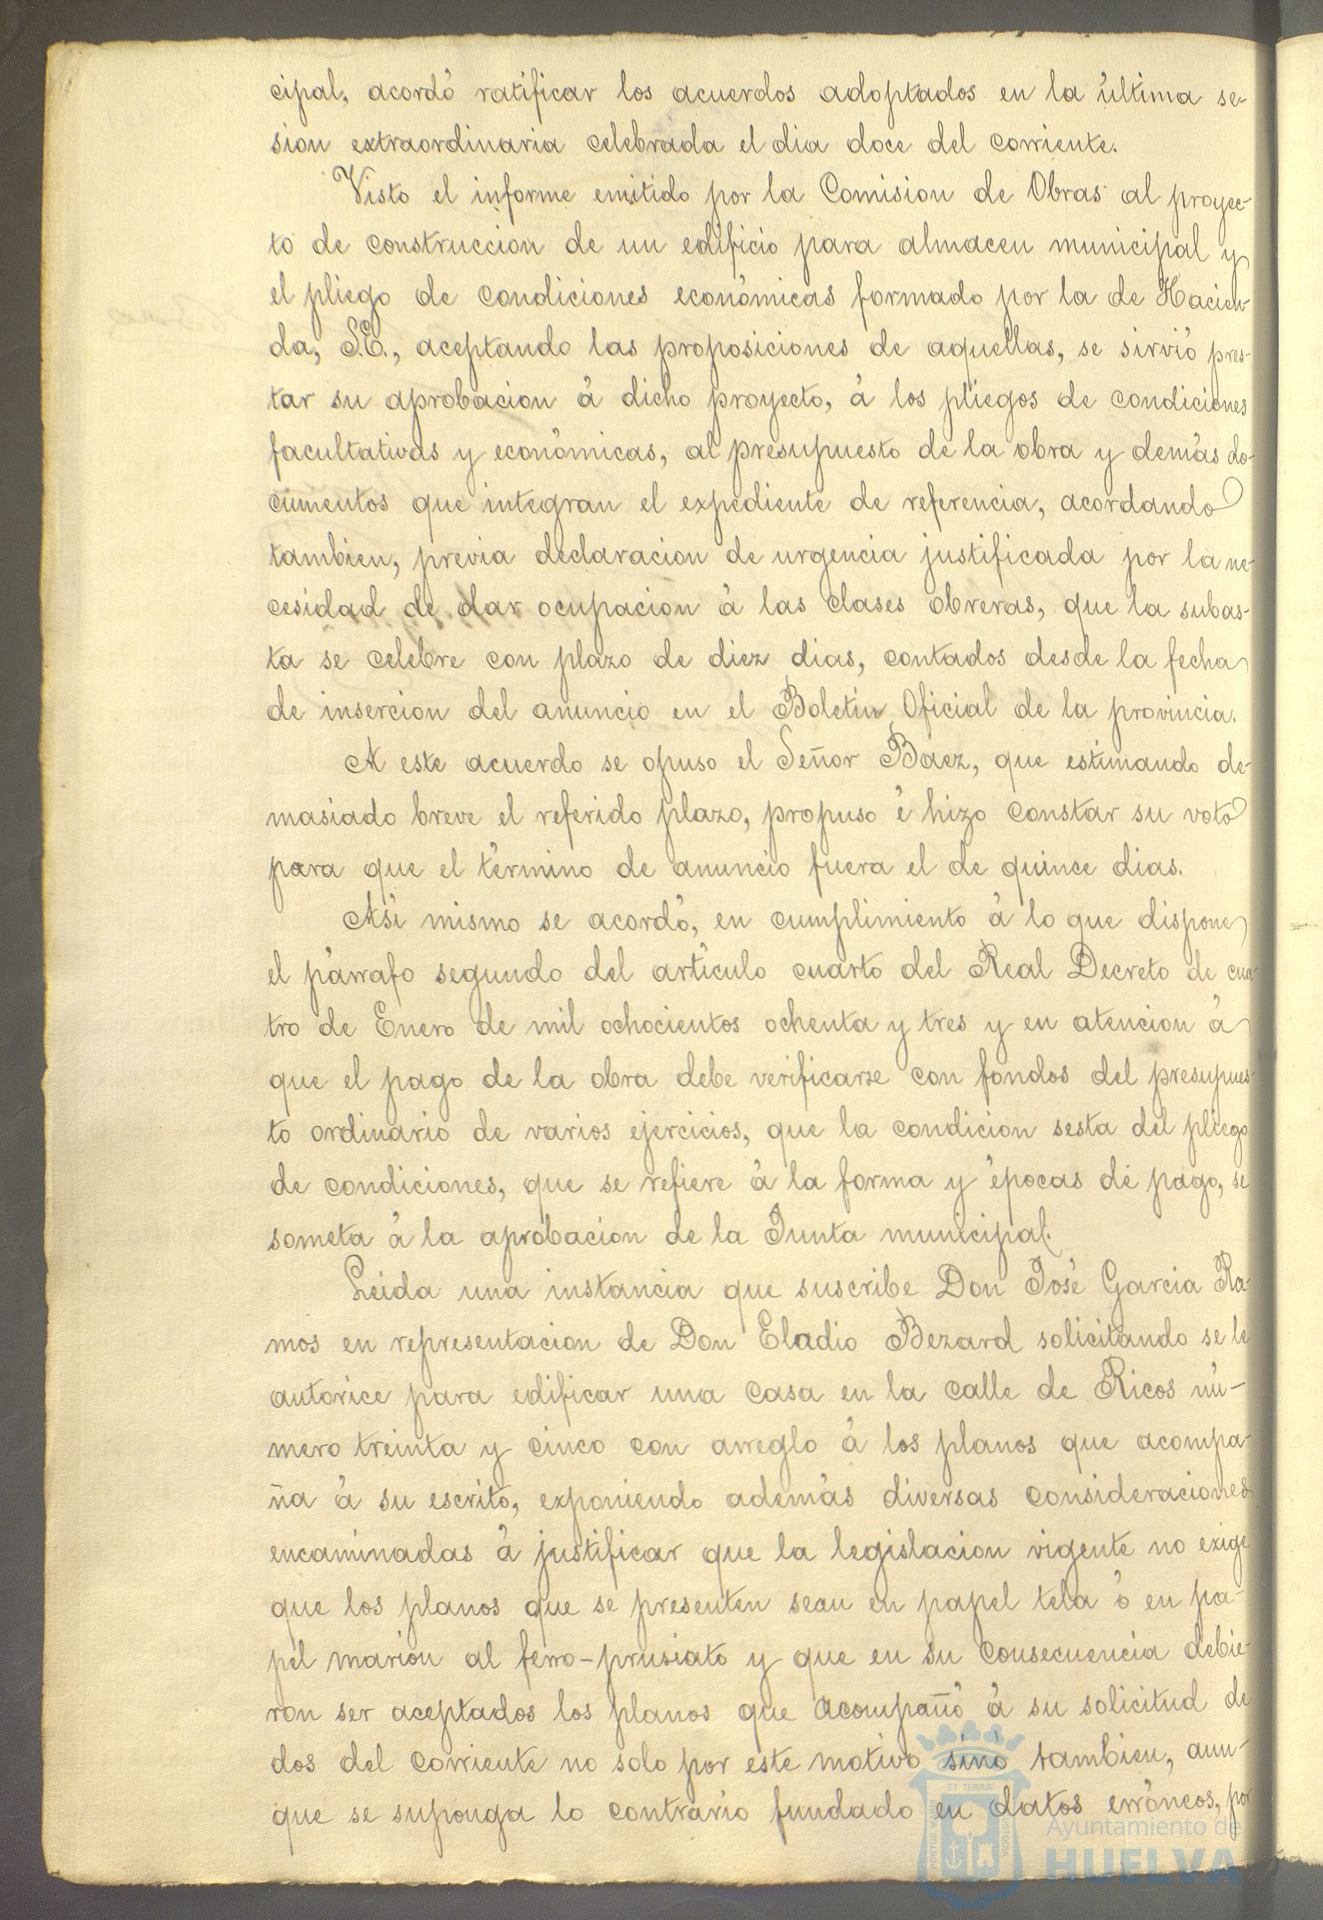 cipal, acordó ratificar los acuerdos adoptados en la última se-
sion extraordinaria celebrada el dia doce del corriente.
Visto el informe emitido por la Comision de Obras al proyec-
to de construccion de un edificio para almacen municipal y
el pliego de condiciones económicas formado por la de Hacien-
da, S.E., aceptando las proposiciones de aquellas, se sirvió pres-
tar su aprobacion á dicho proyecto, á los pliegos de condiciones
facultativas y económicas, al presupuesto de la obra y demás do-
cumentos que integran el expediente de referencia, acordando
tambien, previa declaracion de urgencia justificada por la ne-
cesidad de dar ocupacion á las clases obreras, que la subas-
ta se celebre con plazo de diez dias, contados desde la fecha
de insercion del anuncio en el Boletin Oficial de la provincia.
A este acuerdo se opuso el Señor Báez, que estimando de-
masiado breve el referido plazo, propuso é hizo constar su voto
para que el término de anuncio fuera el de quince dias.
Asi mismo se acordó, en cumplimiento á lo que dispone
el párrafo segundo del artículo cuarto del Real Decreto de cua-
tro de Enero de mil ochocientos ochenta y tres y en atencion á
que el pago de la obra debe verificarse con fondos del presupues-
to ordinario de varios ejercicios, que la condicion sesta del pliego
de condiciones, que se refiere á la forma y épocas de pago, se
someta á la aprobacion de la Junta municipal.
Leida una instancia que suscribe Don José Garcia Ra-
mos en representacion de Don Eladio Bezard solicitando se le
autorice para edificar una casa en la calle de Ricos nú-
mero treinta y cinco con arreglo á los planos que acompa-
ña á su escrito, exponiendo además diversas consideraciones
encaminadas á justificar que la legislacion vigente no exige
que los planos que se presenten sean en papel tela ó en pa-
pel marion al ferro-prusiato y que en su consecuencia debie-
ron ser aceptados los planos que acompañó á su solicitud de
dos del corriente no solo por este motivo sinó tambien, aun-
que se suponga lo contrario fundado en datos erróneos, por
Ayuntamiento de
HUELVA